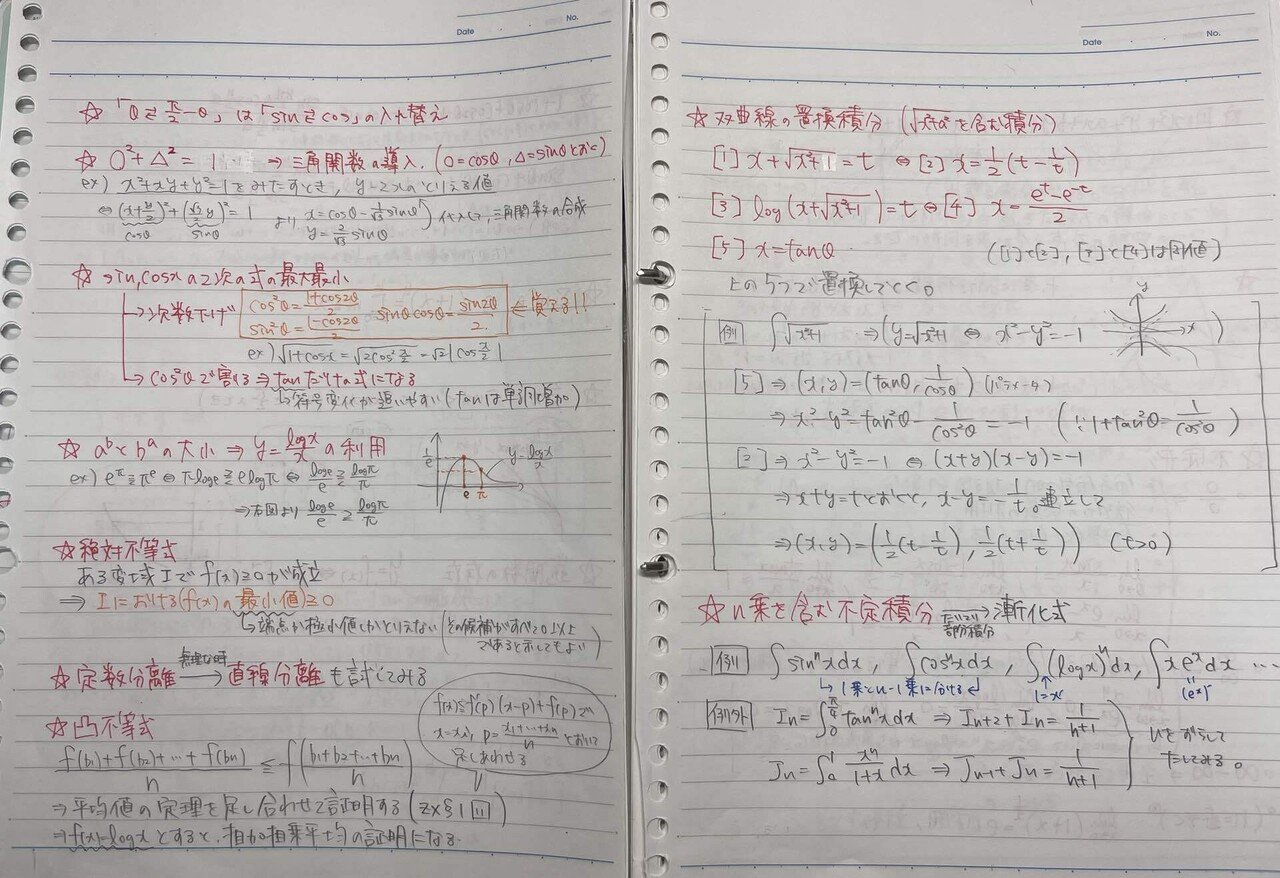 Date
No.
☆「θ⇄π/2-θ」は「sin⇄cos」の入れ替え
☆ ○²+△²=1 ⇒ 三角関数の導入. (○=cosθ, △=sinθとおく)
ex) x²+xy+y²=1をみたすとき, y-2xのとりえる値
⇔ (x+y/2)²+(√3/2 y)²=1 より x=cosθ-1/√3 sinθ
cosθ sinθ y=2/√3 sinθ 代入して, 三角関数の合成
☆ sin, cosxの2次の式の最大最小
→次数下げ cos²θ=1+cos2θ/2 sinθcosθ=sin2θ/2 ⇐覚える!!
sin²θ=1-cos2θ/2
ex) √1+cosx=√2cos²x/2=√2|cos x/2|
→ cos²θで割る⇒tanだけの式になる
→符号変化が追いやすい (tanは単調増加)
☆ aᵇとbᵃの大小 ⇒ y=logx/x の利用
ex) e^π≧π^e ⇔ πloge≧elogπ ⇔ loge/e≧logπ/π
⇒右図より loge/e≧logπ/π
1/e
y=logx/x
e π
☆絶対不等式
ある変域Iでf(x)≧0が成立
⇒ Iにおける(f(x)の最小値)≧0
→端点か極小値しかとりえない (その候補がすべて0以上
であると示してもよい)
☆定数分離 無理な時→ 直線分離も試してみる
☆凸不等式
f(b₁)+f(b₂)+…+f(bn)/n ≦ f(b₁+b₂+…+bn/n)
f(x)≦f'(p)(x-p)+f(p)で
x=x₁, p=x₁+…+xn/n とおいて
足しあわせる
⇒平均値の定理を足し合わせて証明する (ZX§1回)
⇒f(x)=logxとすると, 相加相乗平均の証明になる
Date
No.
☆双曲線の置換積分 (√x²+a²を含む積分)
[1] x+√x²+1=t ⇔ [2] x=1/2(t-1/t)
[3] log(x+√x²+1)=t ⇔ [4] x=e^t-e^-t/2
[5] x=tanθ ([1]と[2], [3]と[4]は同値)
上の5つで置換してとく。
例 ∫√x²+1 ⇒(y=√x²+1 ⇔ x²-y²=-1 )
y
x
[5] ⇒ (x,y)=(tanθ, 1/cosθ)
⇒ x²-y²=tan²θ-1/cos²θ=-1 (∵1+tan²θ=1/cos²θ)
[2] ⇒ x²-y²=-1 ⇔ (x+y)(x-y)=-1
⇒x+y=tとおくと, x-y=-1/t。連立して
⇒(x,y)=(1/2(t-1/t), 1/2(t+1/t)) (t>0)
☆n乗を含む不定積分 部分積分→漸化式
例 ∫sinⁿxdx, ∫cosⁿxdx, ∫(logx)ⁿdx, ∫xeˣdx …
→1乗とn-1乗に分ける 1=x' (eˣ)'
例外 In=∫₀^π/4 tanⁿxdx ⇒ In+2+In=1/n+1
Jn=∫₀¹ xⁿ/1+x dx ⇒ Jn+1+Jn=1/n+1
nをずらして
たしてみる。